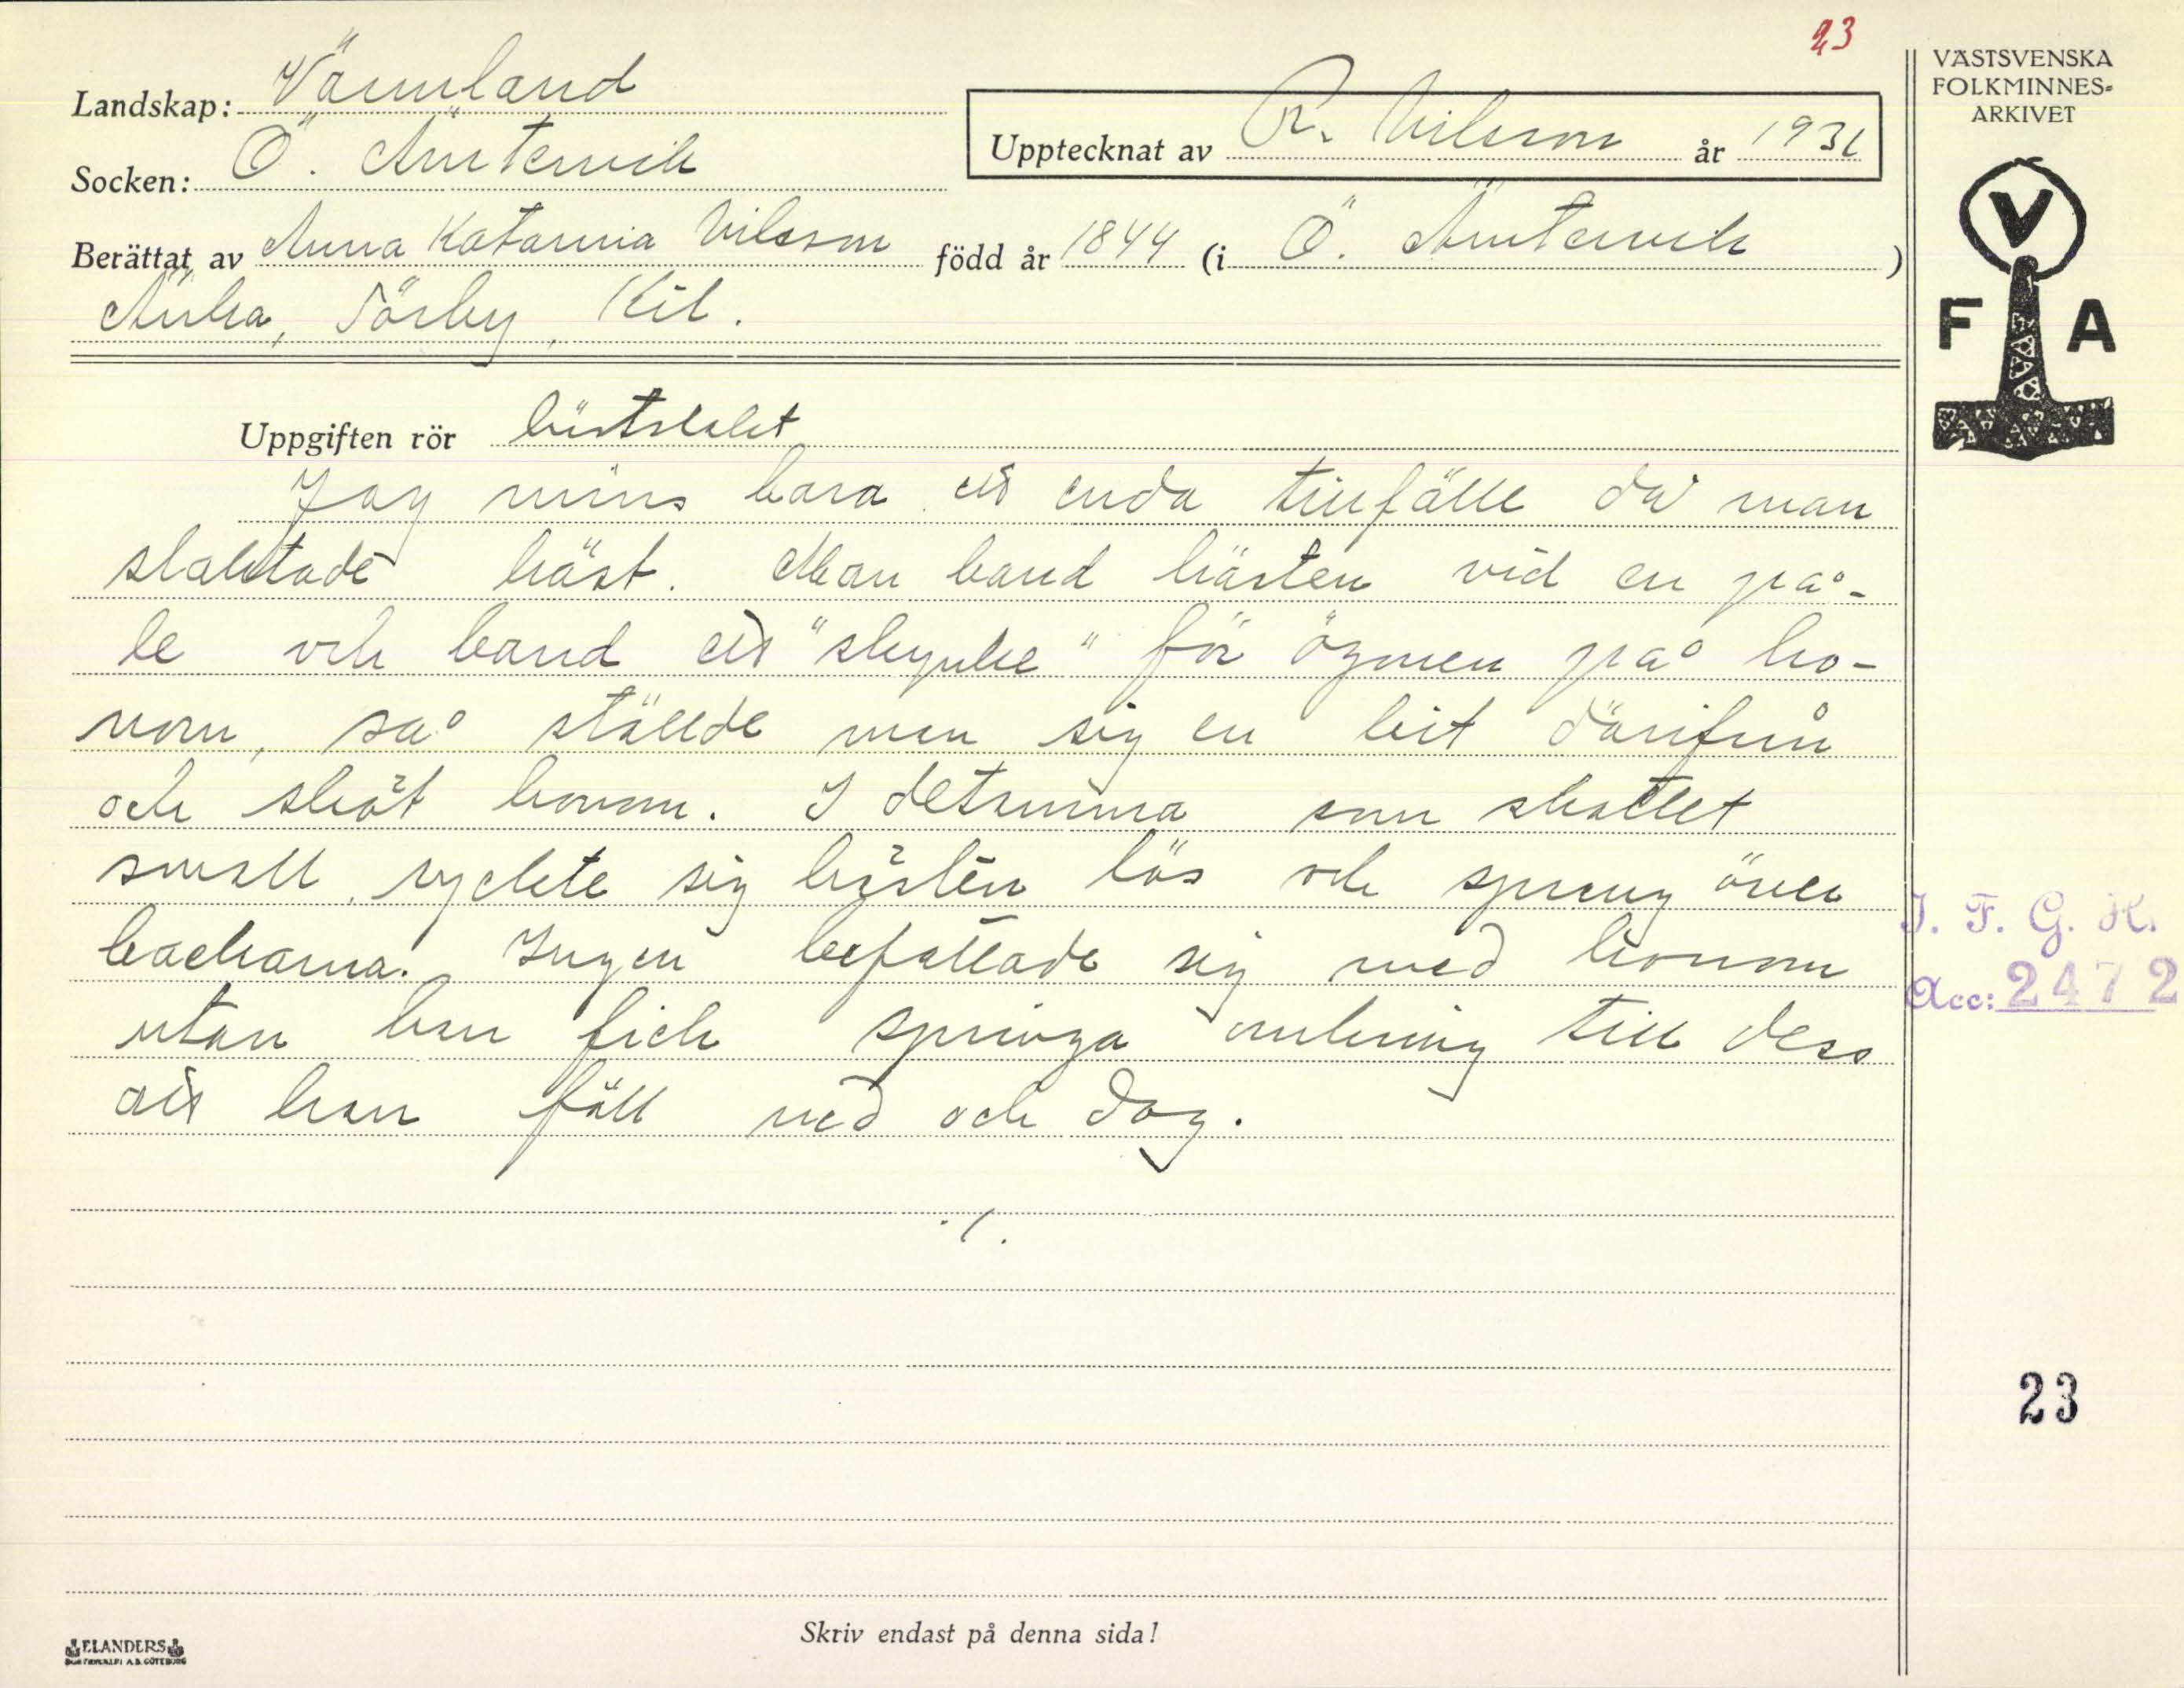 23
VÄSTSVENSKA
FOLKMINNES-
ARKIVET
Landskap: Värmland
Upptecknat av R. Nilsson år 1931
Socken: Ö. Ämtervik
Berättat av Anna Katarina Nilsson född år 1844 (i Ö. Ämtervik)
Torby, Kil.
V
F A
Uppgiften rör
Jag mins bara ett enda tillfälle då man
slaktade häst. Man band hästen vid en på-
le och band ett "skynke" för ögonen på ho-
nom, så ställde man sig en bit därifrån
och sköt honom. I detsamma som skottet
small, ryckte sig hästen lös och sprang över
backarna. Ingen befattade sig med honom
utan han fick springa omkring till dess
att han föll ned och dog.
./.
I. F. G. H.
Acc: 2472
23
Skriv endast på denna sida!
ELANDERS
BOKTRYCKERI A.B. GÖTEBORG